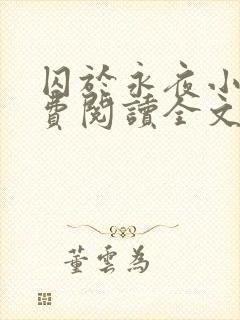 囚於永夜小
費閱讀全文
董雲為